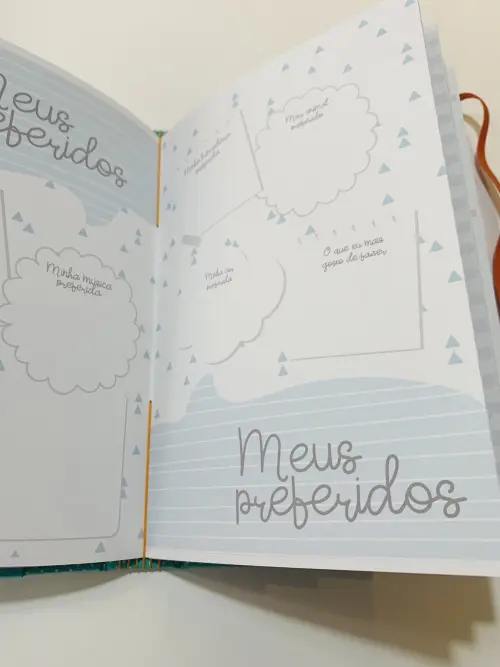 Meus
preferidos
Minha música
preferida
Minha brincadeira
preferida
Meu animal
preferido
Minha cor
preferida
O que eu mais
gosto de fazer
Meus
preferidos